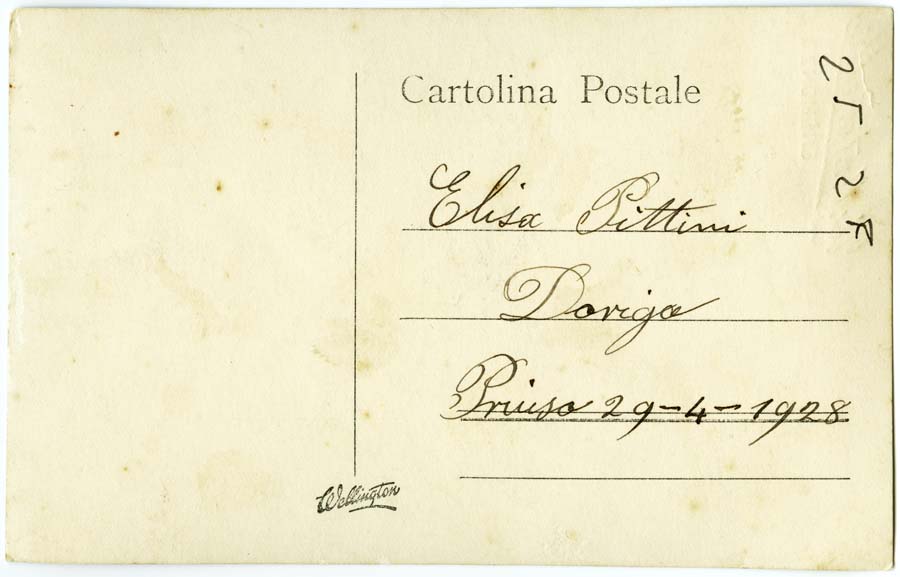 Cartolina Postale
Elisa Pittini
Doriga
Priuso 29-4-1928
Wellington
2 5 2 F